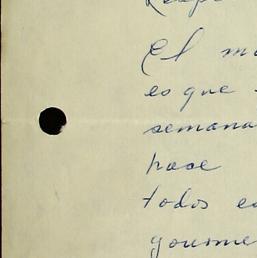 El m
es que
semana
pase
todos e
gourme